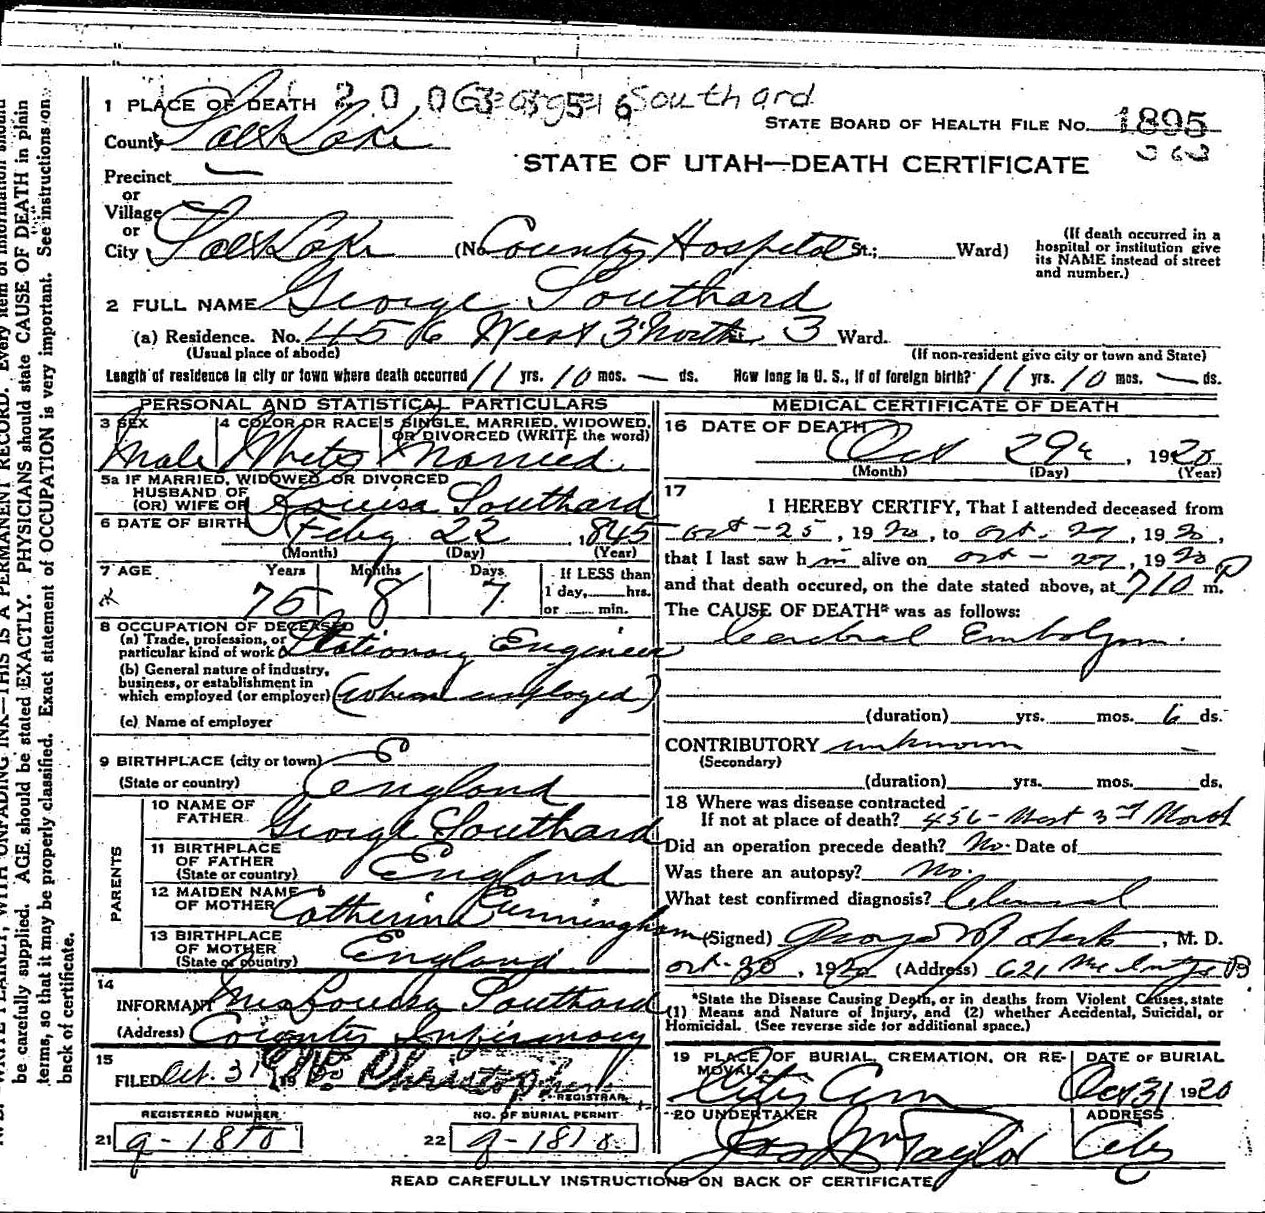 George Southard
1 PLACE OF DEATH
STATE BOARD OF HEALTH FILE No. 1895
County Salt Lake
STATE OF UTAH—DEATH CERTIFICATE
Precinct
or
Village
or
City Salt Lake (No. County Hospital St.; Ward)
(If death occurred in a
hospital or institution give
its NAME instead of street
and number.)
2 FULL NAME George Southard
(a) Residence. No. 456 West 3 North 3 Ward.
(Usual place of abode) (If non-resident give city or town and State)
Length of residence in city or town where death occurred 11 yrs. 10 mos. — ds. How long in U. S., if of foreign birth? 11 yrs. 10 mos. — ds.
PERSONAL AND STATISTICAL PARTICULARS
3 SEX 4 COLOR OR RACE 5 SINGLE, MARRIED, WIDOWED,
OR DIVORCED (WRITE the word)
Male White Married
5a IF MARRIED, WIDOWED OR DIVORCED
HUSBAND OF
(OR) WIFE OF Louisa Southard
6 DATE OF BIRTH Feby 22, 1845
(Month) (Day) (Year)
7 AGE Years Months Days If LESS than
1 day, hrs.
75 8 7 or min.
8 OCCUPATION OF DECEASED
(a) Trade, profession, or
particular kind of work Stationary Engineer
(b) General nature of industry,
business, or establishment in
which employed (or employer) (when employed)
(c) Name of employer
9 BIRTHPLACE (city or town)
(State or country) England
PARENTS
10 NAME OF
FATHER George Southard
11 BIRTHPLACE
OF FATHER
(State or country) England
12 MAIDEN NAME
OF MOTHER Catherine Cunningham
13 BIRTHPLACE
OF MOTHER
(State or country) England
14
INFORMANT Mrs Louisa Southard
(Address) County Infirmary
15
FILED Oct. 31 19
REGISTRAR
REGISTERED NUMBER NO. OF BURIAL PERMIT
21 22
MEDICAL CERTIFICATE OF DEATH
16 DATE OF DEATH
Oct 29, 1920
(Month) (Day) (Year)
17
I HEREBY CERTIFY, That I attended deceased from
Oct - 25, 1920, to Oct. 27, 1920,
that I last saw him alive on Oct - 27, 1920
and that death occured, on the date stated above, at 710 P m.
The CAUSE OF DEATH* was as follows:
Cerebral Embolism.
(duration) yrs. mos. 6 ds.
CONTRIBUTORY unknown
(Secondary)
(duration) yrs. mos. ds.
18 Where was disease contracted
If not at place of death? 456 - West 3rd North
Did an operation precede death? No. Date of
Was there an autopsy? No.
What test confirmed diagnosis? Clinical
(Signed) George Roberts, M. D.
Oct - 30, 1920 (Address) 621 McIntyre B
*State the Disease Causing Death, or in deaths from Violent Causes, state
(1) Means and Nature of Injury, and (2) whether Accidental, Suicidal, or
Homicidal. (See reverse side for additional space.)
19 PLACE OF BURIAL, CREMATION, OR RE-
MOVAL DATE OF BURIAL
City Cem Oct 31 1920
20 UNDERTAKER ADDRESS
Jos Wm Taylor City
READ CAREFULLY INSTRUCTIONS ON BACK OF CERTIFICATE
WRITE PLAINLY, WITH UNFADING INK—THIS IS A PERMANENT RECORD. Every item of information should
be carefully supplied. AGE should be stated EXACTLY. PHYSICIANS should state CAUSE OF DEATH in plain
terms, so that it may be properly classified. Exact statement of OCCUPATION is very important. See instructions on
back of certificate.